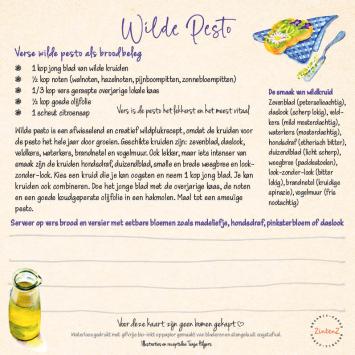 Wilde Pesto
Verse wilde pesto als broodbeleg
1 kop jong blad van wilde kruiden
½ kop noten (walnoten, hazelnoten, pijnboompitten, zonnebloempitten)
1/3 kop vers geraspte overjarige lokale kaas
½ kop goede olijfolie
1 scheut citroensap
Vers is de pesto het lekkerst en het meest vitaal
Wilde pesto is een afwisselend en creatief wildplukrecept, omdat de kruiden voor
de pesto het hele jaar door groeien. Geschikte kruiden zijn: zevenblad, daslook,
veldkers, waterkers, brandnetel en vogelmuur. Ook lekker, maar iets intenser van
smaak zijn de kruiden hondsdraf, duizendblad, smalle en brede weegbree en look-
zonder-look. Kies een kruid die je kan oogsten en neem 1 kop jong blad. Je kan
kruiden ook combineren. Doe het jonge blad met de overjarige kaas, de noten
en een goede koudgeperste olijfolie in een hakmolen. Maal tot een smeuïge
pesto.
De smaak van wildkruid
Zevenblad (peterselieachtig),
daslook (scherp lokig), veld-
kers (mild mosterdachtig),
waterkers (mosterdachtig),
hondsdraf (etherisch bitter),
duizendblad (licht scherp),
weegbree (paddestoelen),
look-zonder-look (bitter
lokig), brandnetel (kruidige
spinazie), vogelmuur (fris
nootachtig)
Serveer op vers brood en versier met eetbare bloemen zoals madeliefje, hondsdraf, pinksterbloem of daslook
Voor deze kaart zijn geen bomen gekapt
Waterloos gedrukt met gifvrije bio-inkt op papier gemaakt van bladeren en stengels uit oogstafval.
Illustraties en receptidee Tanja Hilgers
ZintenZ